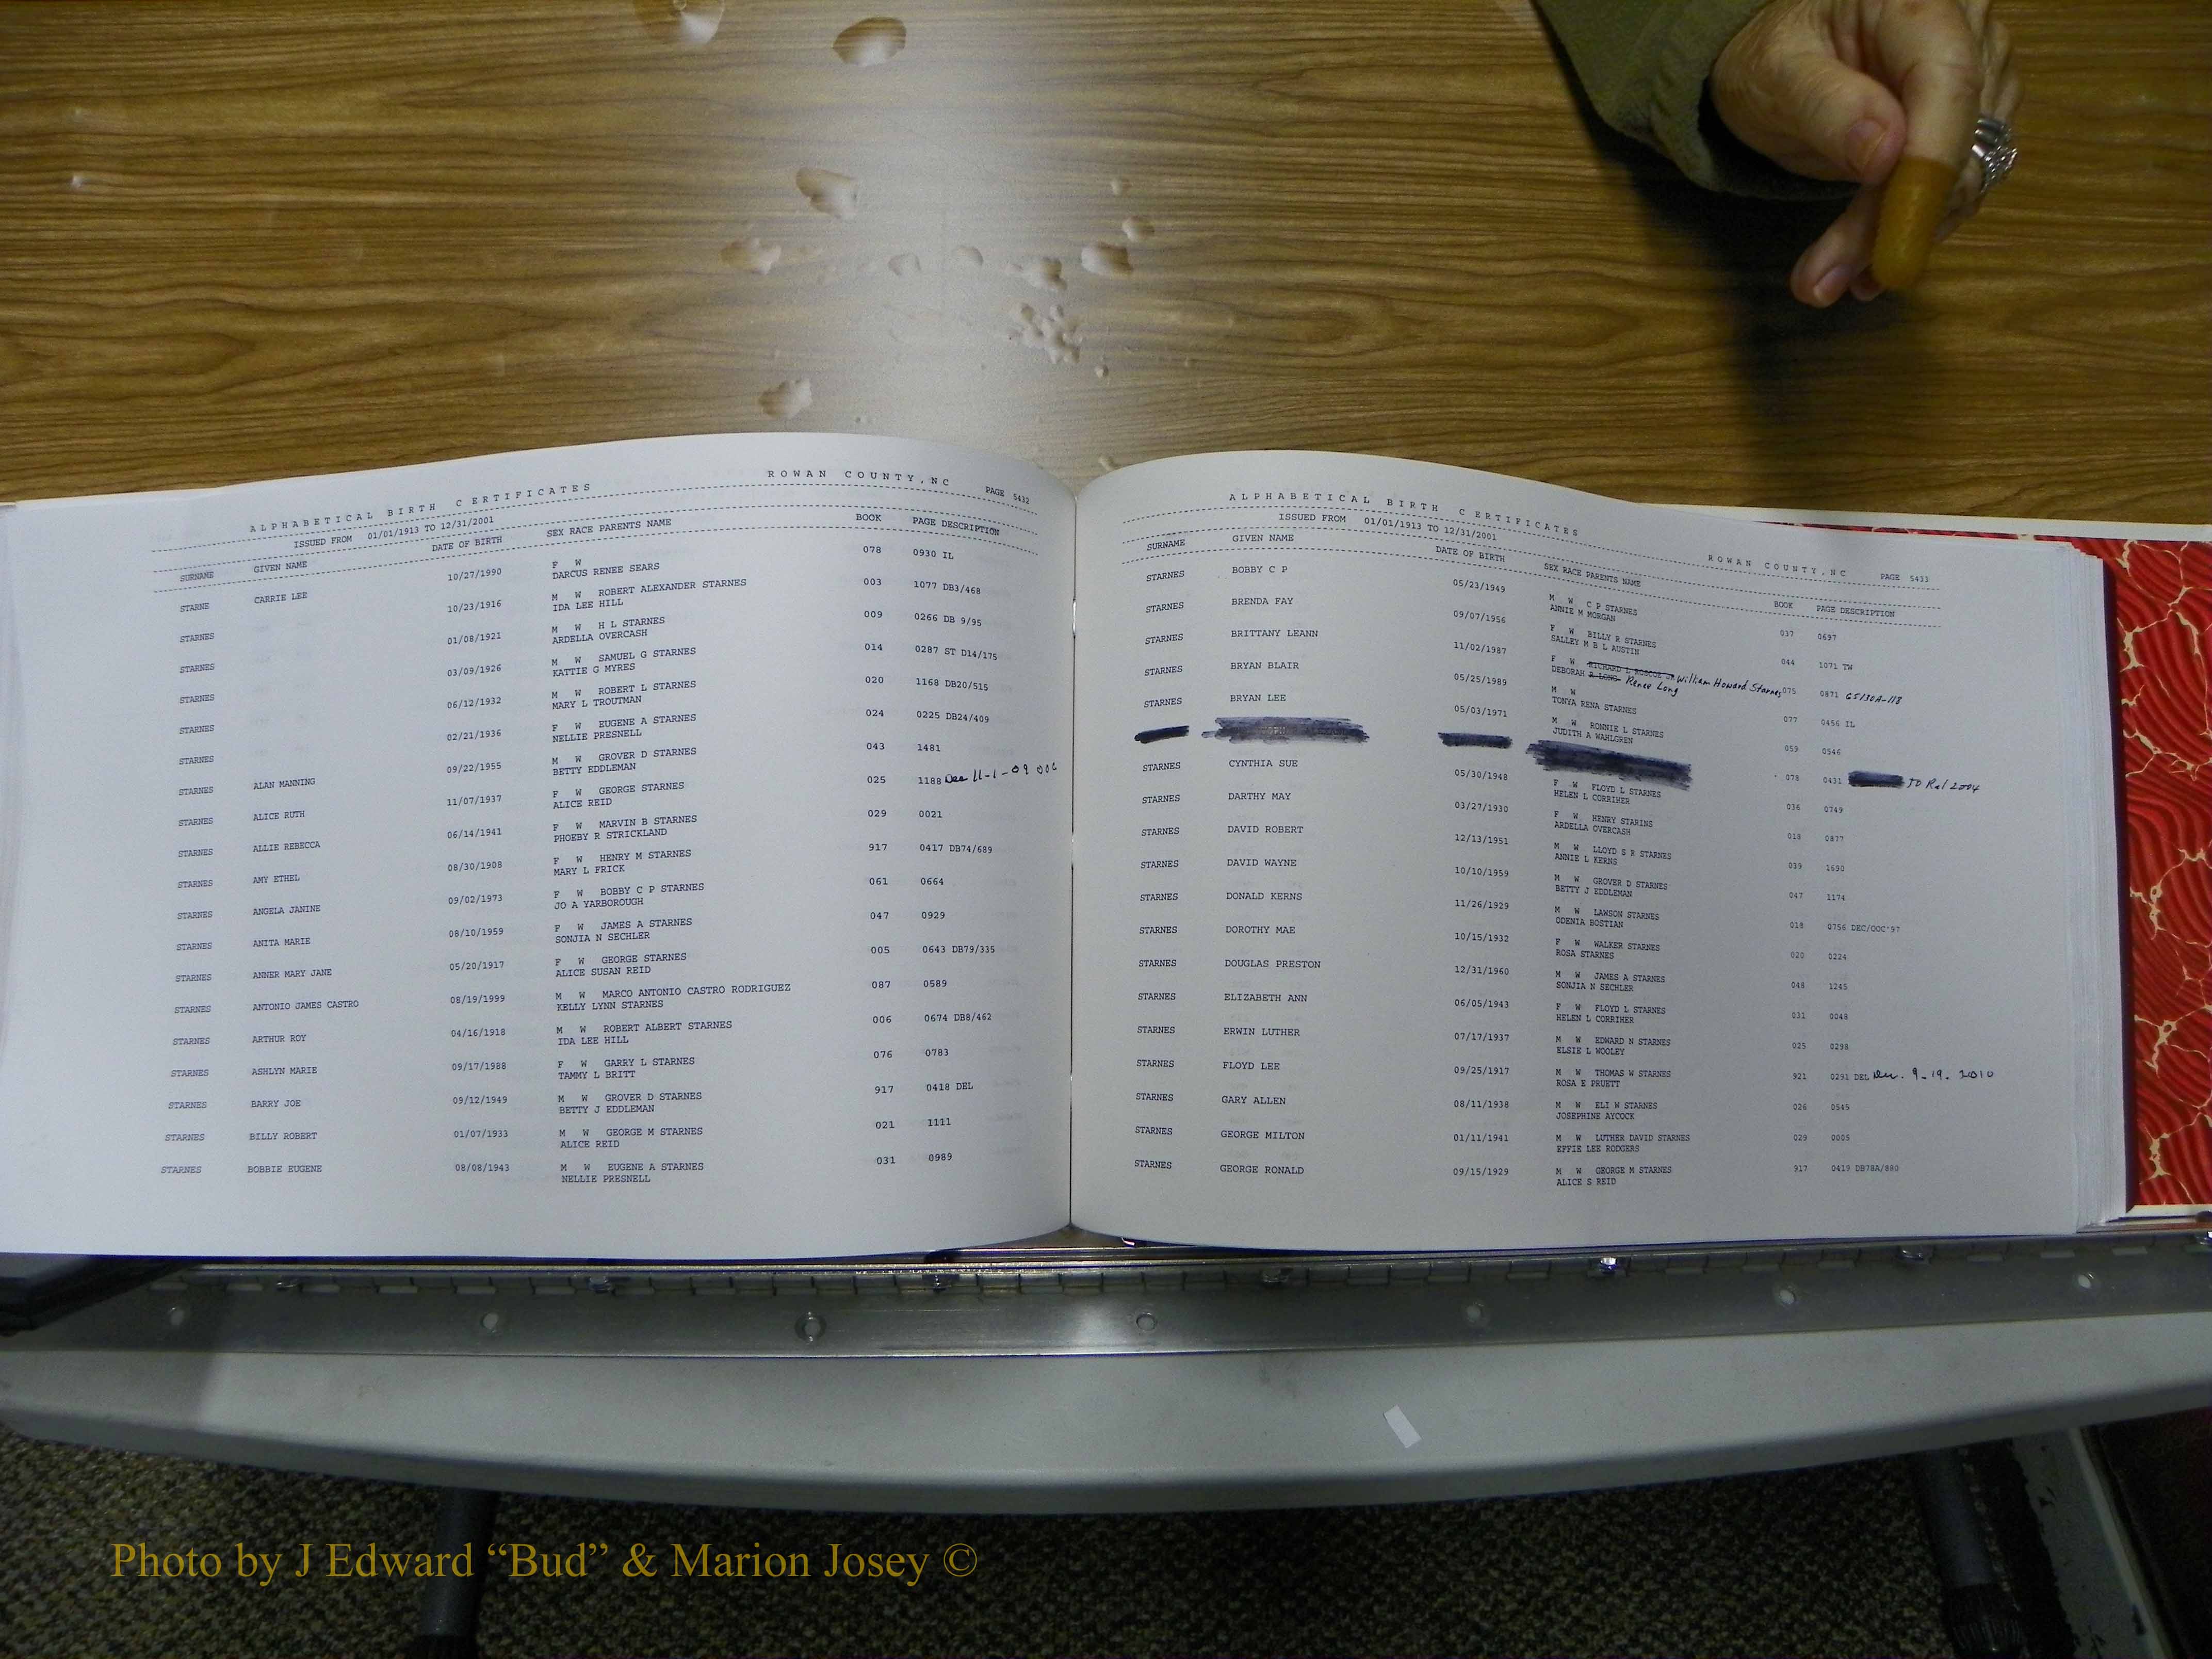 ALPHABETICAL BIRTH CERTIFICATES ROWAN COUNTY,NC PAGE 5432
ISSUED FROM 01/01/1913 TO 12/31/2001
SURNAME GIVEN NAME DATE OF BIRTH SEX RACE PARENTS NAME BOOK PAGE DESCRIPTION
STARNE CARRIE LEE 10/27/1990 F W 078 0930 IL
DARCUS RENEE SEARS
STARNES 10/23/1916 M W ROBERT ALEXANDER STARNES 003 1077 DB3/468
IDA LEE HILL
STARNES 01/08/1921 M W H L STARNES 009 0266 DB 9/95
ARDELLA OVERCASH
STARNES 03/09/1926 M W SAMUEL G STARNES 014 0287 ST D14/175
KATTIE G MYRES
STARNES 06/12/1932 M W ROBERT L STARNES 020 1168 DB20/515
MARY L TROUTMAN
STARNES 02/21/1936 F W EUGENE A STARNES 024 0225 DB24/409
NELLIE PRESNELL
STARNES ALAN MANNING 09/22/1955 M W GROVER D STARNES 043 1481
BETTY EDDLEMAN
STARNES ALICE RUTH 11/07/1937 F W GEORGE STARNES 025 1188 Dec 11-1-09
ALICE REID
STARNES ALLIE REBECCA 06/14/1941 F W MARVIN B STARNES 029 0021
PHOEBY R STRICKLAND
STARNES AMY ETHEL 08/30/1908 F W HENRY M STARNES 917 0417 DB74/689
MARY L FRICK
STARNES ANGELA JANINE 09/02/1973 F W BOBBY C P STARNES 061 0664
JO A YARBOROUGH
STARNES ANITA MARIE 08/10/1959 F W JAMES A STARNES 047 0929
SONJIA N SECHLER
STARNES ANNER MARY JANE 05/20/1917 F W GEORGE STARNES 005 0643 DB79/335
ALICE SUSAN REID
STARNES ANTONIO JAMES CASTRO 08/19/1999 M W MARCO ANTONIO CASTRO RODRIGUEZ 087 0589
KELLY LYNN STARNES
STARNES ARTHUR ROY 04/16/1918 M W ROBERT ALBERT STARNES 006 0674 DB8/462
IDA LEE HILL
STARNES ASHLYN MARIE 09/17/1988 F W GARRY L STARNES 076 0783
TAMMY L BRITT
STARNES BARRY JOE 09/12/1949 M W GROVER D STARNES 917 0418 DEL
BETTY J EDDLEMAN
STARNES BILLY ROBERT 01/07/1933 M W GEORGE M STARNES 021 1111
ALICE REID
STARNES BOBBIE EUGENE 08/08/1943 M W EUGENE A STARNES 031 0989
NELLIE PRESNELL
ALPHABETICAL BIRTH CERTIFICATES ROWAN COUNTY,NC PAGE 5433
ISSUED FROM 01/01/1913 TO 12/31/2001
SURNAME GIVEN NAME DATE OF BIRTH SEX RACE PARENTS NAME BOOK PAGE DESCRIPTION
STARNES BOBBY C P 05/23/1949 M W C P STARNES 037 0697
ANNIE M MORGAN
STARNES BRENDA FAY 09/07/1956 F W BILLY R STARNES 044 1071 TW
SALLEY M B L AUSTIN
STARNES BRITTANY LEANN 11/02/1987 F W RICHARD L ROSCOE JR William Howard Starnes 075 0871 65/30A-118
DEBORAH R LONG Renee Long
STARNES BRYAN BLAIR 05/25/1989 M W 077 0456 IL
TONYA RENA STARNES
STARNES BRYAN LEE 05/03/1971 M W RONNIE L STARNES 059 0546
JUDITH A WAHLGREN
078 0431 TO Ral 2004
STARNES CYNTHIA SUE 05/30/1948 F W FLOYD L STARNES 036 0749
HELEN L CORRIHER
STARNES DARTHY MAY 03/27/1930 F W HENRY STARINS 018 0877
ARDELLA OVERCASH
STARNES DAVID ROBERT 12/13/1951 M W LLOYD S R STARNES 039 1690
ANNIE L KERNS
STARNES DAVID WAYNE 10/10/1959 M W GROVER D STARNES 047 1174
BETTY J EDDLEMAN
STARNES DONALD KERNS 11/26/1929 M W LAWSON STARNES 018 0756 DEC/OOC'97
ODENIA BOSTIAN
STARNES DOROTHY MAE 10/15/1932 F W WALKER STARNES 020 0224
ROSA STARNES
STARNES DOUGLAS PRESTON 12/31/1960 M W JAMES A STARNES 048 1245
SONJIA N SECHLER
STARNES ELIZABETH ANN 06/05/1943 F W FLOYD L STARNES 031 0048
HELEN L CORRIHER
STARNES ERWIN LUTHER 07/17/1937 M W EDWARD N STARNES 025 0298
ELSIE L WOOLEY
STARNES FLOYD LEE 09/25/1917 M W THOMAS W STARNES 921 0291 DEL Dec. 9-19-2010
ROSA E PRUETT
STARNES GARY ALLEN 08/11/1938 M W ELI W STARNES 026 0545
JOSEPHINE AYCOCK
STARNES GEORGE MILTON 01/11/1941 M W LUTHER DAVID STARNES 029 0005
EFFIE LEE RODGERS
STARNES GEORGE RONALD 09/15/1929 M W GEORGE M STARNES 917 0419 DB78A/880
ALICE S REID
Photo by J Edward “Bud” & Marion Josey ©